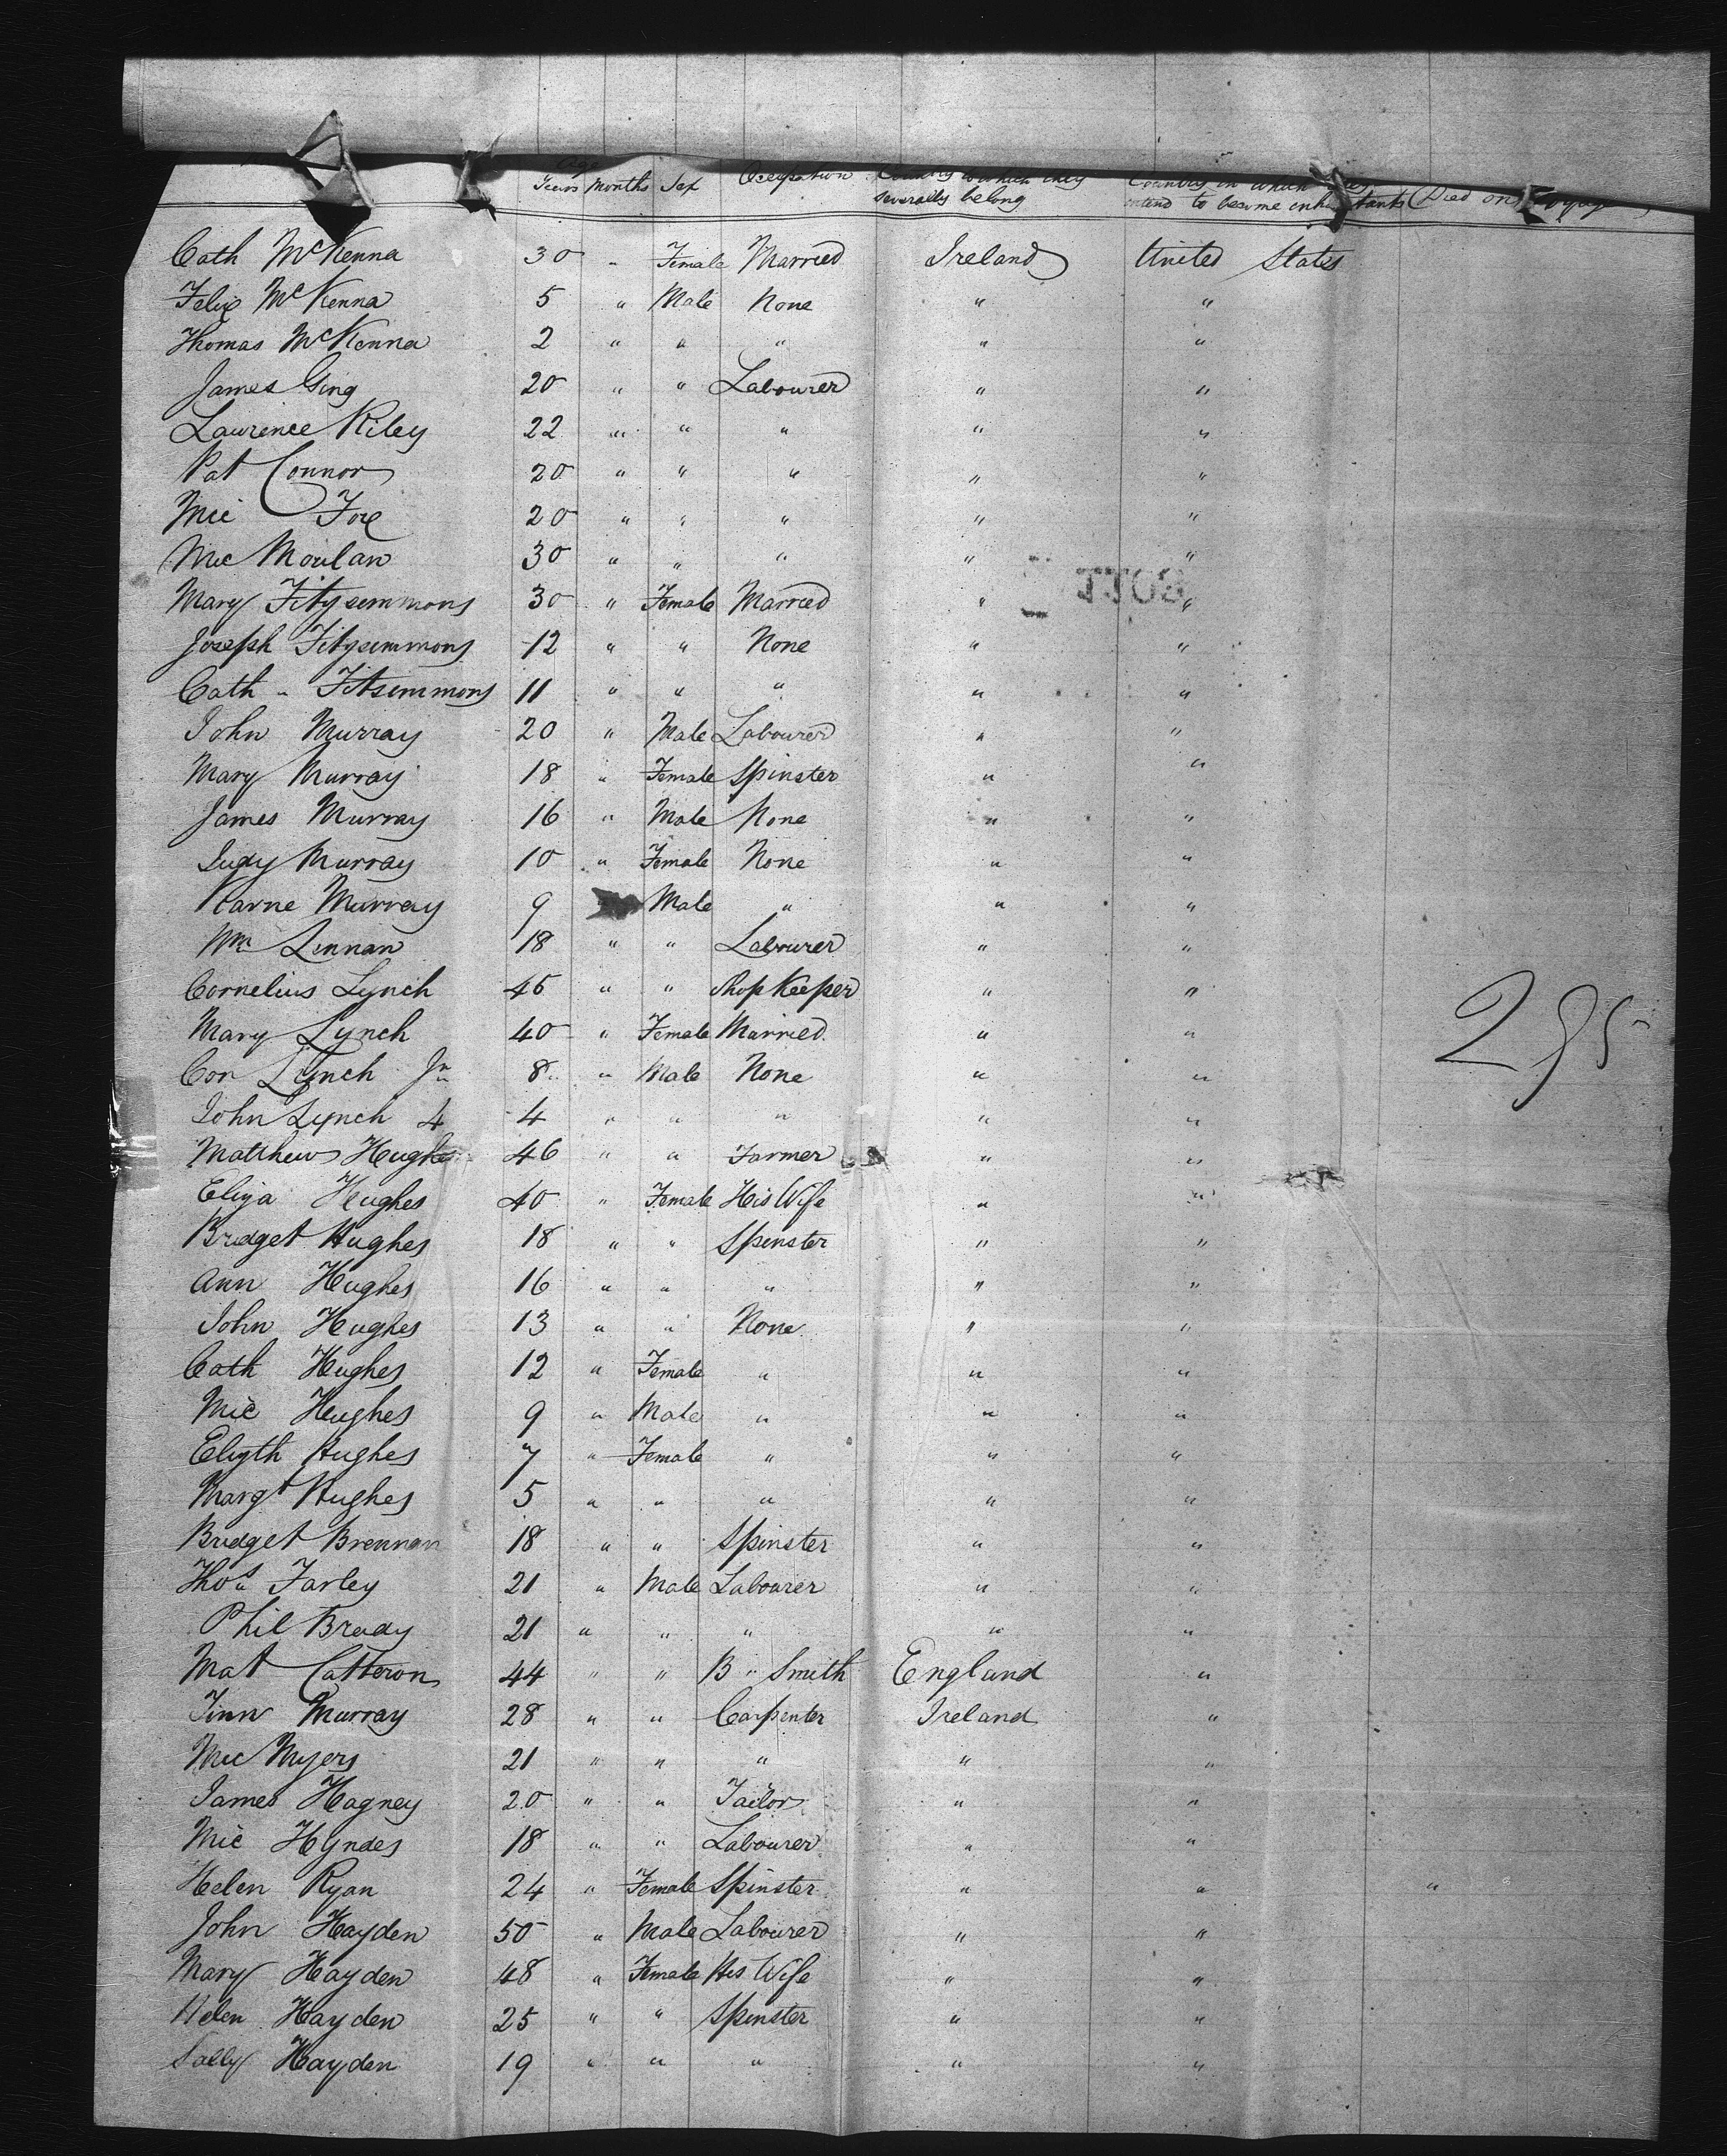 Age
Years Months Sex Occupation Country to which they severally belong Country in which they intend to become inhabitants Died on Voyage
Cath McKenna 30 " Female Married Ireland United States
Felix McKenna 5 " Male None " "
Thomas McKenna 2 " " " " "
James Ging 20 " " Labourer " "
Laurence Riley 22 " " " " "
Pat Connor 20 " " " " "
Mic Fox 20 " " " " "
Mic Moulan 30 " " " " "
Mary Fitzsimmons 30 " Female Married " "
Joseph Fitzsimmons 12 " " None " "
Cath " Fitsimmons 11 " " " " "
John Murray 20 " Male Labourer " "
Mary Murray 18 " Female Spinster " "
James Murray 16 " Male None " "
Judy Murray 10 " Female None " "
Karne Murray 9 Male " " "
Wm Linnan 18 " " Labourer " "
Cornelius Lynch 45 " " Shop Keeper " "
Mary Lynch 40 " Female Married " "
Con Lynch Jn 8 " Male None " "
John Lynch 4 4 " " " " "
Matthew Hughes 46 " " Farmer " "
Eliza Hughes 40 " Female His Wife " "
Bridget Hughes 18 " " Spinster " "
Ann Hughes 16 " " " " "
John Hughes 13 " " None " "
Cath Hughes 12 " Female " " "
Mic Hughes 9 " Male " " "
Elizth Hughes 7 " Female " " "
Margt Hughes 5 " " " " "
Bridget Brennan 18 " " Spinster " "
Thos Farley 21 " Male Labourer " "
Phil Brady 21 " " " " "
Mat Catteron 44 " " B " Smith England "
Finn Murray 28 " " Carpenter Ireland "
Mic Myers 21 " " " " "
James Hagney 20 " " Tailor " "
Mic Hyndes 18 " " Labourer " "
Helen Ryan 24 " Female Spinster " " "
John Hayden 50 " Male Labourer " "
Mary Hayden 48 " Female His Wife " "
Helen Hayden 25 " " Spinster " "
Sally Hayden 19 " " " " "
295